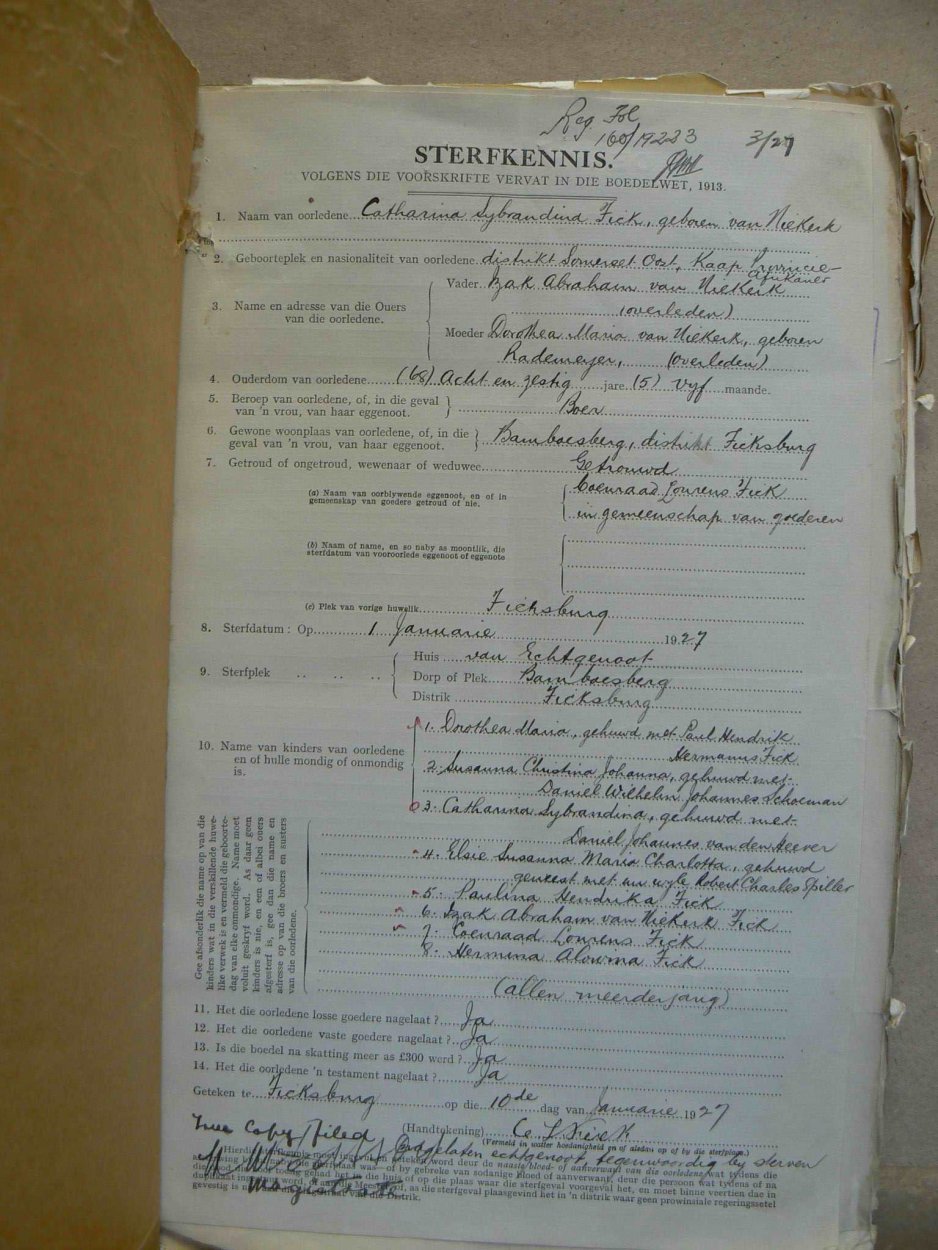 Reg Fol
160/19233 3/27
STERFKENNIS.
VOLGENS DIE VOORSKRIFTE VERVAT IN DIE BOEDELWET, 1913.
1. Naam van oorledene Catharina Sybrandina Fick, geboren van Niekerk
2. Geboorteplek en nasionaliteit van oorledene distrikt Somerset Oost, Kaap Provincie
Afrikaner
3. Name en adresse van die Ouers van die oorledene. Vader Izak Abraham van Niekerk
(overleden)
Moeder Dorothea Maria van Niekerk, geboren
Rademeijer, (overleden)
4. Ouderdom van oorledene (68) Acht en zestig jare (5) vyf maande.
5. Beroep van oorledene, of, in die geval van 'n vrou, van haar eggenoot. Boer
6. Gewone woonplaas van oorledene, of, in die geval van 'n vrou, van haar eggenoot. Bamboesberg, distrikt Ficksburg
7. Getroud of ongetroud, wewenaar of weduwee Getrouwd
(a) Naam van oorblywende eggenoot, en of in gemeenskap van goedere getroud of nie. Coenraad Lourens Fick
in gemeenschap van goederen
(b) Naam of name, en so naby as moontlik, die sterfdatum van vooroorlede eggenoot of eggenote
(c) Plek van vorige huwelik Ficksburg
8. Sterfdatum: Op 1 Januarie 1927
9. Sterfplek Huis van Echtgenoot
Dorp of Plek Bamboesberg
Distrik Ficksburg
10. Name van kinders van oorledene en of hulle mondig of onmondig is.
1. Dorothea Maria, gehuwd met Paul Hendrik
Hermanus Fick
2. Susanna Christina Johanna, gehuwd met
Daniel Wilhelm Johannes Schoeman
3. Catharina Sybrandina, gehuwd met
Daniel Johannes van den Heever
4. Elsie Susanna Maria Charlotta, gehuwd
geweest met nu wyle Robert Charles Spiller
5. Paulina Hendrika Fick
6. Izak Abraham van Niekerk Fick
7. Coenraad Lourens Fick
8. Hermina Fick
(allen meerderjarig)
Gee afsonderlik die name op van die
kinders wat in die verskillende huwe-
like verwek is en vermeld die geboorte-
dag van elke onmondige. Name moet
voluit geskryf word. As daar geen
kinders is nie, en een of albei ouers
afgesterf is, gee dan die name en
adresse op van die broers en susters
van die oorledene.
11. Het die oorledene losse goedere nagelaat? Ja
12. Het die oorledene vaste goedere nagelaat? Ja
13. Is die boedel na skatting meer as £300 werd? Ja
14. Het die oorledene 'n testament nagelaat? Ja
Geteken te Ficksburg op die 10de dag van Januarie 1927
(Handtekening) C. L. Fick
(Vermeld in watter hoedanigheid en of aldan op of by die sterfplaas.)
True Copy filed
Nagelaten echtgenoot tegenwoordig by sterven
Magistrate